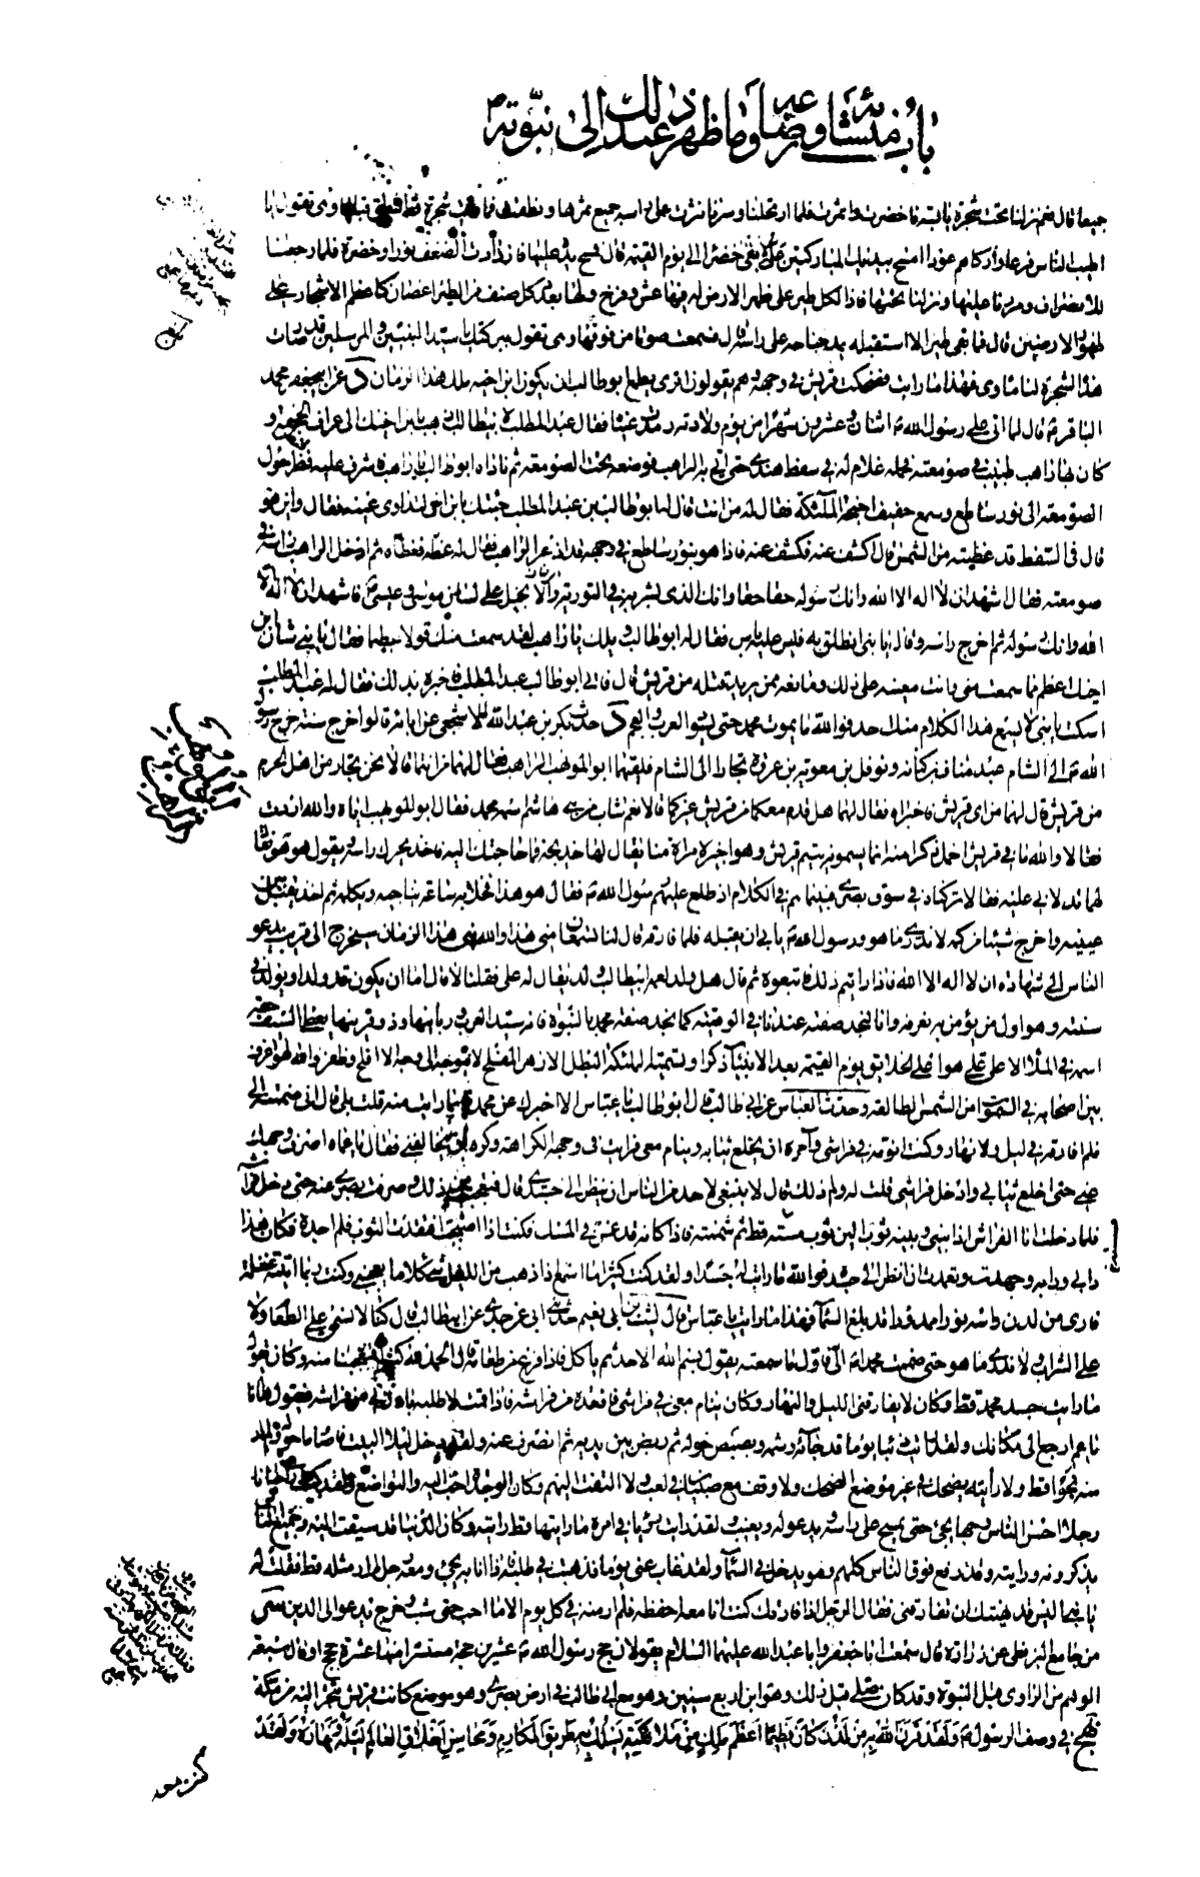 باب منشائه و رضاعه وما ظهر من ذلك عند الى نبوته ص
جميعا قال ثم نزلنا تحت شجرة يابسة فاخضرت واثمرت فلما ارتحلنا وسرنا نثرت على راسه جميع ثمرها ونطقت
اطيب الناس فرعا وأزكاهم عودا امسح بيديك المباركتين على لأبقى خضرا الى يوم القيمة قال فمسح يده عليها فازدادت الضعف نورا وخضرة فلما رجعنا
للانصراف ومررنا عليها ونزلنا تحتها فاذا كل طير على ظهر الارض له فيها عش وفرخ ولها بعدد كل صنف من الطير اغصان كاعظم الاشجار على
ظهور الارضين قال فما بقى طير الا استقبله يمد جناحه على راسه قال فسمعت صوتا من فوقها وهى تقول ببركتك يا سيد النبيين والمرسلين قد صارت
هذا الشجرة لنا ماوى فهذا ما رايت فضحكت قريش في وجهه وهم يقولون اترى يطمع ابو طالب ان يكون ابن اخيه ملك هذا الزمان ك عن ابي جعفر محمد
الباقر ع قال لما اتى على رسول الله ص اثنان وعشرون شهرا من يوم ولادته رمدت عيناه فقال عبد المطلب لابيطالب اذهب بابن اخيك الى عراف الجحفة و
كان بها راهب طبيب في صومعته فحمله غلام له في سفط هندي حتى اتى به الراهب فوضعه تحت الصومعة ثم ناداه ابو طالب يا راهب فاشرف عليه فنظر حول
الصومعة الى نور ساطع وسمع حفيف اجنحة الملئكة فقال له من انت قال انا ابو طالب بن عبد المطلب جئتك بابن اخى لتداوى عينه فقال واين هو
قال في السفط قد غطيته من الشمس قال اكشف عنه فكشف عنه فاذا هو بنور ساطع في وجهه قد اذعر الراهب فقال له غطه فغطاه ثم ادخل الراهب راسه في
صومعته فقال اشهد ان لا اله الا الله وانك رسوله حقا حقا وانك الذى بشر به في التورية والانجيل على لسان موسى وعيسى ع فاشهد ان لا اله الا
الله وانك رسوله ثم اخرج راسه وقال يا بنى انطلق به فليس عليه باس فقال له ابو طالب ويلك يا راهب لقد سمعت منك قولا عظيما فقال يا بنى شان ابن
اخيك اعظم مما سمعت منى وانت معينه على ذلك ومانعه ممن يريد قتله من قريش قال فاتى ابو طالب عبد المطلب فاخبره بذلك فقال له عبد المطلب
اسكت يا بنى لا يسمع هذا الكلام منك احد فوالله ما يموت محمد حتى يسود العرب والعجم ك حدث بكر بن عبد الله الاشجعي عن ابائه قالوا خرج سنة خرج رسول
الله ص الى الشام عبد مناف بن كنانة ونوفل بن معوية بن عروة تجارا الى الشام فلقيهما ابو المويهب الراهب فقال لهما من انتما قالا نحن تجار من اهل الحرم
من قريش قال لهما من اى قريش فاخبراه فقال لهما هل قدم معكما من قريش غيركما قالا نعم شاب من بنى هاشم اسمه محمد فقال ابو المويهب اياه والله اردت
فقالا والله ما في قريش اخمل ذكرا منه انما يسمونه يتيم قريش وهو اجير لامراة منا يقال لها خديجة فما حاجتك اليه فاخذ يحرك راسه ويقول هو هو فقال
لهما تدلاني عليه فقالا تركناه في سوق بصرى فبينما هم في الكلام اذ طلع عليهم رسول الله ص فقال هو هذا فخلا به ساعة يناجيه ويكلمه ثم اخذ يقبل بين
عينيه واخرج شيئا من كمه لا ندرى ما هو ورسول الله ص يابى ان يقبله فلما فارقه قال لنا تسمعان منى هذا والله نبى هذا الزمان سيخرج الى قريب يدعو
الناس الى شهادة ان لا اله الا الله فاذا رايتم ذلك فاتبعوه ثم قال هل ولد لعمه ابيطالب ولد يقال له على فقلنا لا قال اما ان يكون قد ولد او يولد في
سنته وهو اول من يؤمن به نعرفه وانا لنجد صفته عندنا في الوصية كما نجد صفة محمد بالنبوة فانه سيد العرب وربانيها وذو قرنيها يعطى السيف حقه
اسمه في الملأ الاعلى على هو اعلى الخلايق يوم القيمة بعد الانبياء ذكرا وتسميه الملئكة البطل الازهر المفلح لا يتوجه الى وجه الا افلح وظفر والله لهو اعرف
بين اصحابه في السموات من الشمس الطالعة وحدث العباس عن ابي طالب قال ابو طالب يا عباس الا اخبرك عن محمد ص بما رايت منه قلت بلى قال انى ضممته الى
فلم افارقه في ليل ولا نهار وكنت انومه في فراشى وآمره ان يخلع ثيابه وينام معى فرايت فى وجهه الكراهة وكره ان يخالفنى فقال يا عماه اصرف وجهك
عنى حتى اخلع ثيابى وادخل فراشى قلت له ولم ذلك قال لا ينبغى لاحد من الناس ان ينظر الى جسدى قال فتعجبت من ذلك وصرفت بصرى عنه حتى دخل فراشه
فلما دخلت انا الفراش اذا بينى وبينه ثوب الين ثوب مسسته قط ثم شممته فاذا كانه قد غمس فى المسك فكنت اذا اصبحت افتقدت الثوب فلم اجده فكان هذا
دابى ودابه وجهدت وتعمدت ان انظر الى جسده فوالله ما رايت له جسدا ولقد كنت كثيرا ما اسمع اذا ذهب من الليل شئ كلاما يعجبنى وكنت ربما اتيته غفلة
فارى من لدن راسه نورا ممدودا قد بلغ السماء فهذا ما رايت يا عباس قال ليث بن ابى نعيم حدثنى ابى عن جدى عن ابيطالب قال كنا لا نسمى على الطعام ولا
على الشراب ولا ندرى ما هو حتى ضممت محمدا ص الى فاول ما سمعته يقول بسم الله الاحد ثم ياكل فاذا فرغ من طعامه قال الحمد لله كثيرا فتعجبنا منه وكان يقول
ما رايت جسد محمد قط وكان لا يفارقنى الليل والنهار وكان ينام معى فى فراشى فافقده من فراشه فاذا قمت لاطلبه بادرنى من فراشه فيقول ها انا
يا عم ارجع الى مكانك ولقد رايت ذئبا يوما قد جاءه وشمه وبصبص حوله ثم ربض بين يديه ثم انصرف عنه ولقد دخل ليلا البيت فاضاء ما حوله ولم ار
منه نجوا قط ولا رأيته يضحك فى غير موضع الضحك ولا وقف مع صبيان فى لعب ولا التفت اليهم وكان الوحدة احب اليه والتواضع ولقد كنت ارى احيانا
رجلا احسن الناس وجها يجئ حتى يمسح على راسه ويدعو له ويغيب ولقد رايت رؤيا فى امره ما رايتها قط رايته وكان الدنيا قد سيقت اليه وجميع الناس
يذكرونه ورايته وقد رفع فوق الناس كلهم وهو يدخل فى السماء ولقد غاب عنى يوما فذهبت فى طلبه فاذا انا به يجئ ومعه رجل لم ار مثله قط فقلت له
يا بنى اليس قد نهيتك ان تفارقنى فقال الرجل اذا فارقك كنت انا معه احفظه فلم ار منه فى كل يوم الا ما احب حتى شب وخرج يدعو الى الدين
من جامع البزنطى عن زرارة قال سمعت ابا جعفر وابا عبد الله عليهما السلام يقولان حج رسول الله ص عشرين حجة مستترا منها عشرة حجج او قال سبعة
الوهم من الراوى قبل النبوة وقد كان صلى قبل ذلك وهو ابن اربع سنين وهو مع ابى طالب فى ارض بصرى وهو موضع كانت قريش تتجر اليه من مكة
نهج فى وصف الرسول ص ولقد قرن الله به من لدن كان فطيما اعظم ملك من ملائكته يسلك به طريق المكارم ومحاسن اخلاق العالم ليله ونهاره ولقد
كنت معه